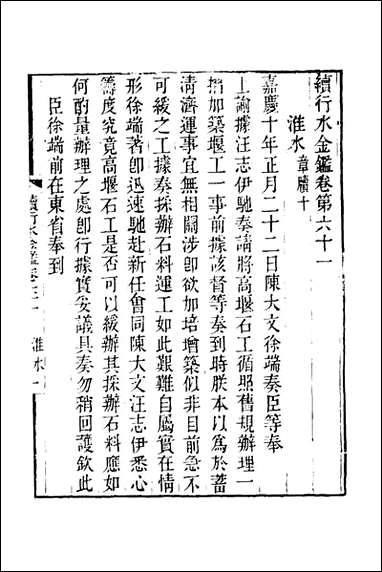 續行水金鑑卷第六十一
淮水章牘十
嘉慶十年正月二十二日陳大文徐端奏臣等奉
上諭據汪志伊馳奏請將高堰石工循照舊規辦理一
摺加築堰工一事前據該督等奏到時朕本以為於蓄
淸濟運事宜無相關涉卽欲加培增築似非目前急不
可緩之工據奏採辦石料運工如此艱難自屬實在情
形徐端著卽迅速馳赴新任會同陳大文汪志伊悉心
籌度究竟高堰石工是否可以緩辦其採辦石料應如
何酌量辦理之處卽行據實妥議具奏勿稍回護欽此
臣徐端前在東省奉到
續行水金鑑卷六十一 淮水 一